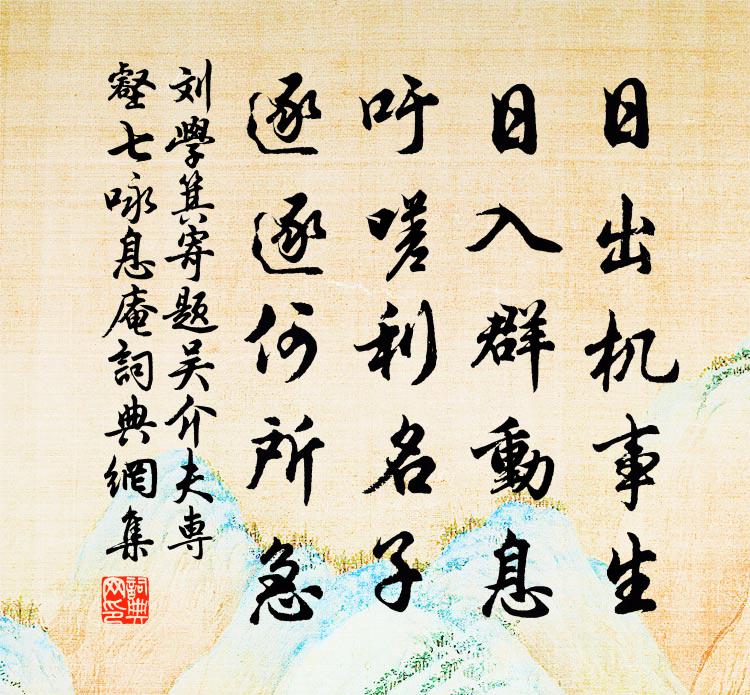 日出机事生
日入群動息
吁嗟利名子
逐逐何所急
刘學箕寄題吴介夫専
壑七咏息庵詞典網集
詞典网印